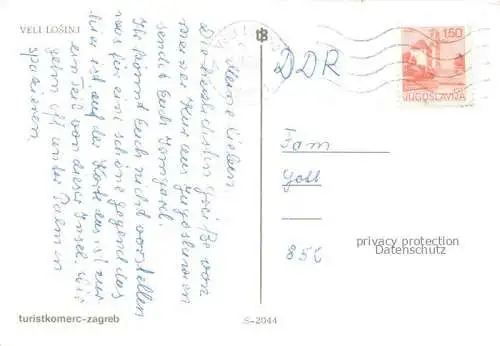 VELI LOŠINJ
Meine Lieben
Die herzlichsten Grüße von
meiner Kur aus Jugoslawien
sendet Euch Irmgard.
Ihr könnt Euch nicht vorstellen
was für eine schöne Gegend das
hier ist, auf der Karte das ist nur
ein Teil von dieser Insel. Wir
gehn oft unter Palmen
spazieren.
turistkomerc-zagreb
S-2044
1,50
JUGOSLAVIJA
DDR
Fam
Goll
85
privacy protection
Datenschutz